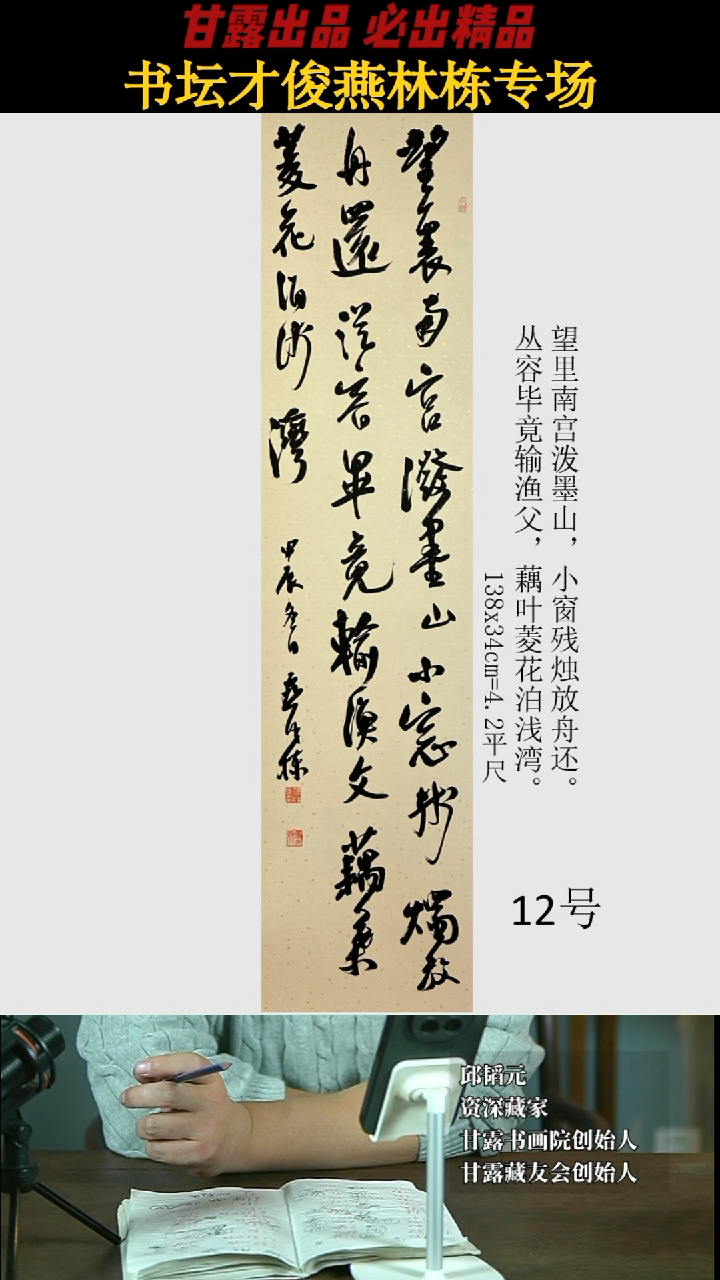 甘露出品 必出精品
书坛才俊燕林栋专场
望裏南宫潑墨山小窓残燭放
舟還從容畢竟輸漁父藕葉
菱花泊浅灣
甲辰冬日燕林栋
望里南宫泼墨山，小窗残烛放舟还。
丛容毕竟输渔父，藕叶菱花泊浅湾。
138x34cm=4.2平尺
12号
邱韬元
资深藏家
甘露书画院创始人
甘露藏友会创始人